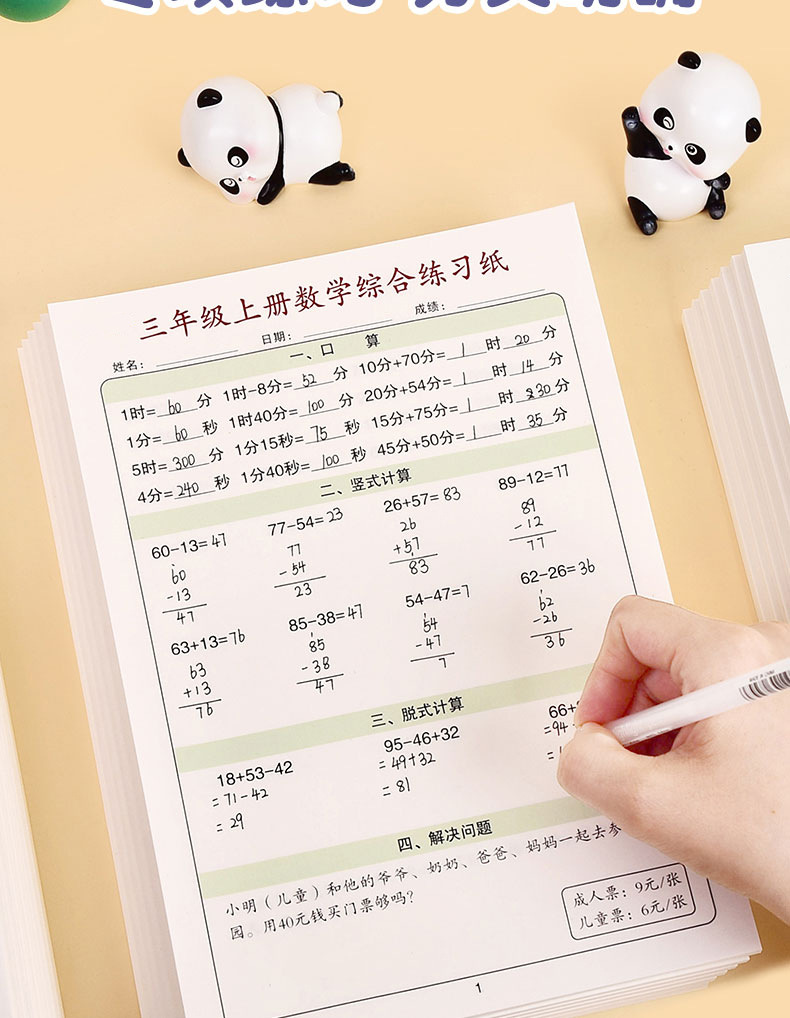 三年级上册数学综合练习纸
姓名: 日期: 成绩:
一、口 算
1时=60分 1时-8分=52分 10分+70分=1时20分
1分=60秒 1时40分=100分 20分+54分=1时14分
5时=300分 1分15秒=75秒 15分+75分=1时30分
4分=240秒 1分40秒=100秒 45分+50分=1时35分
二、竖式计算
60-13=47 77-54=23 26+57=83 89-12=77
60 77 26 89
-13 -54 +57 -12
47 23 83 77
63+13=76 85-38=47 54-47=7 62-26=36
63 85 54 62
+13 -38 -47 -26
76 47 7 36
三、脱式计算
18+53-42 95-46+32 66+
=71-42 =49+32 =94
=29 =81 =
四、解决问题
小明（儿童）和他的爷爷、奶奶、爸爸、妈妈一起去参
园。用40元钱买门票够吗?
成人票: 9元/张
儿童票: 6元/张
1